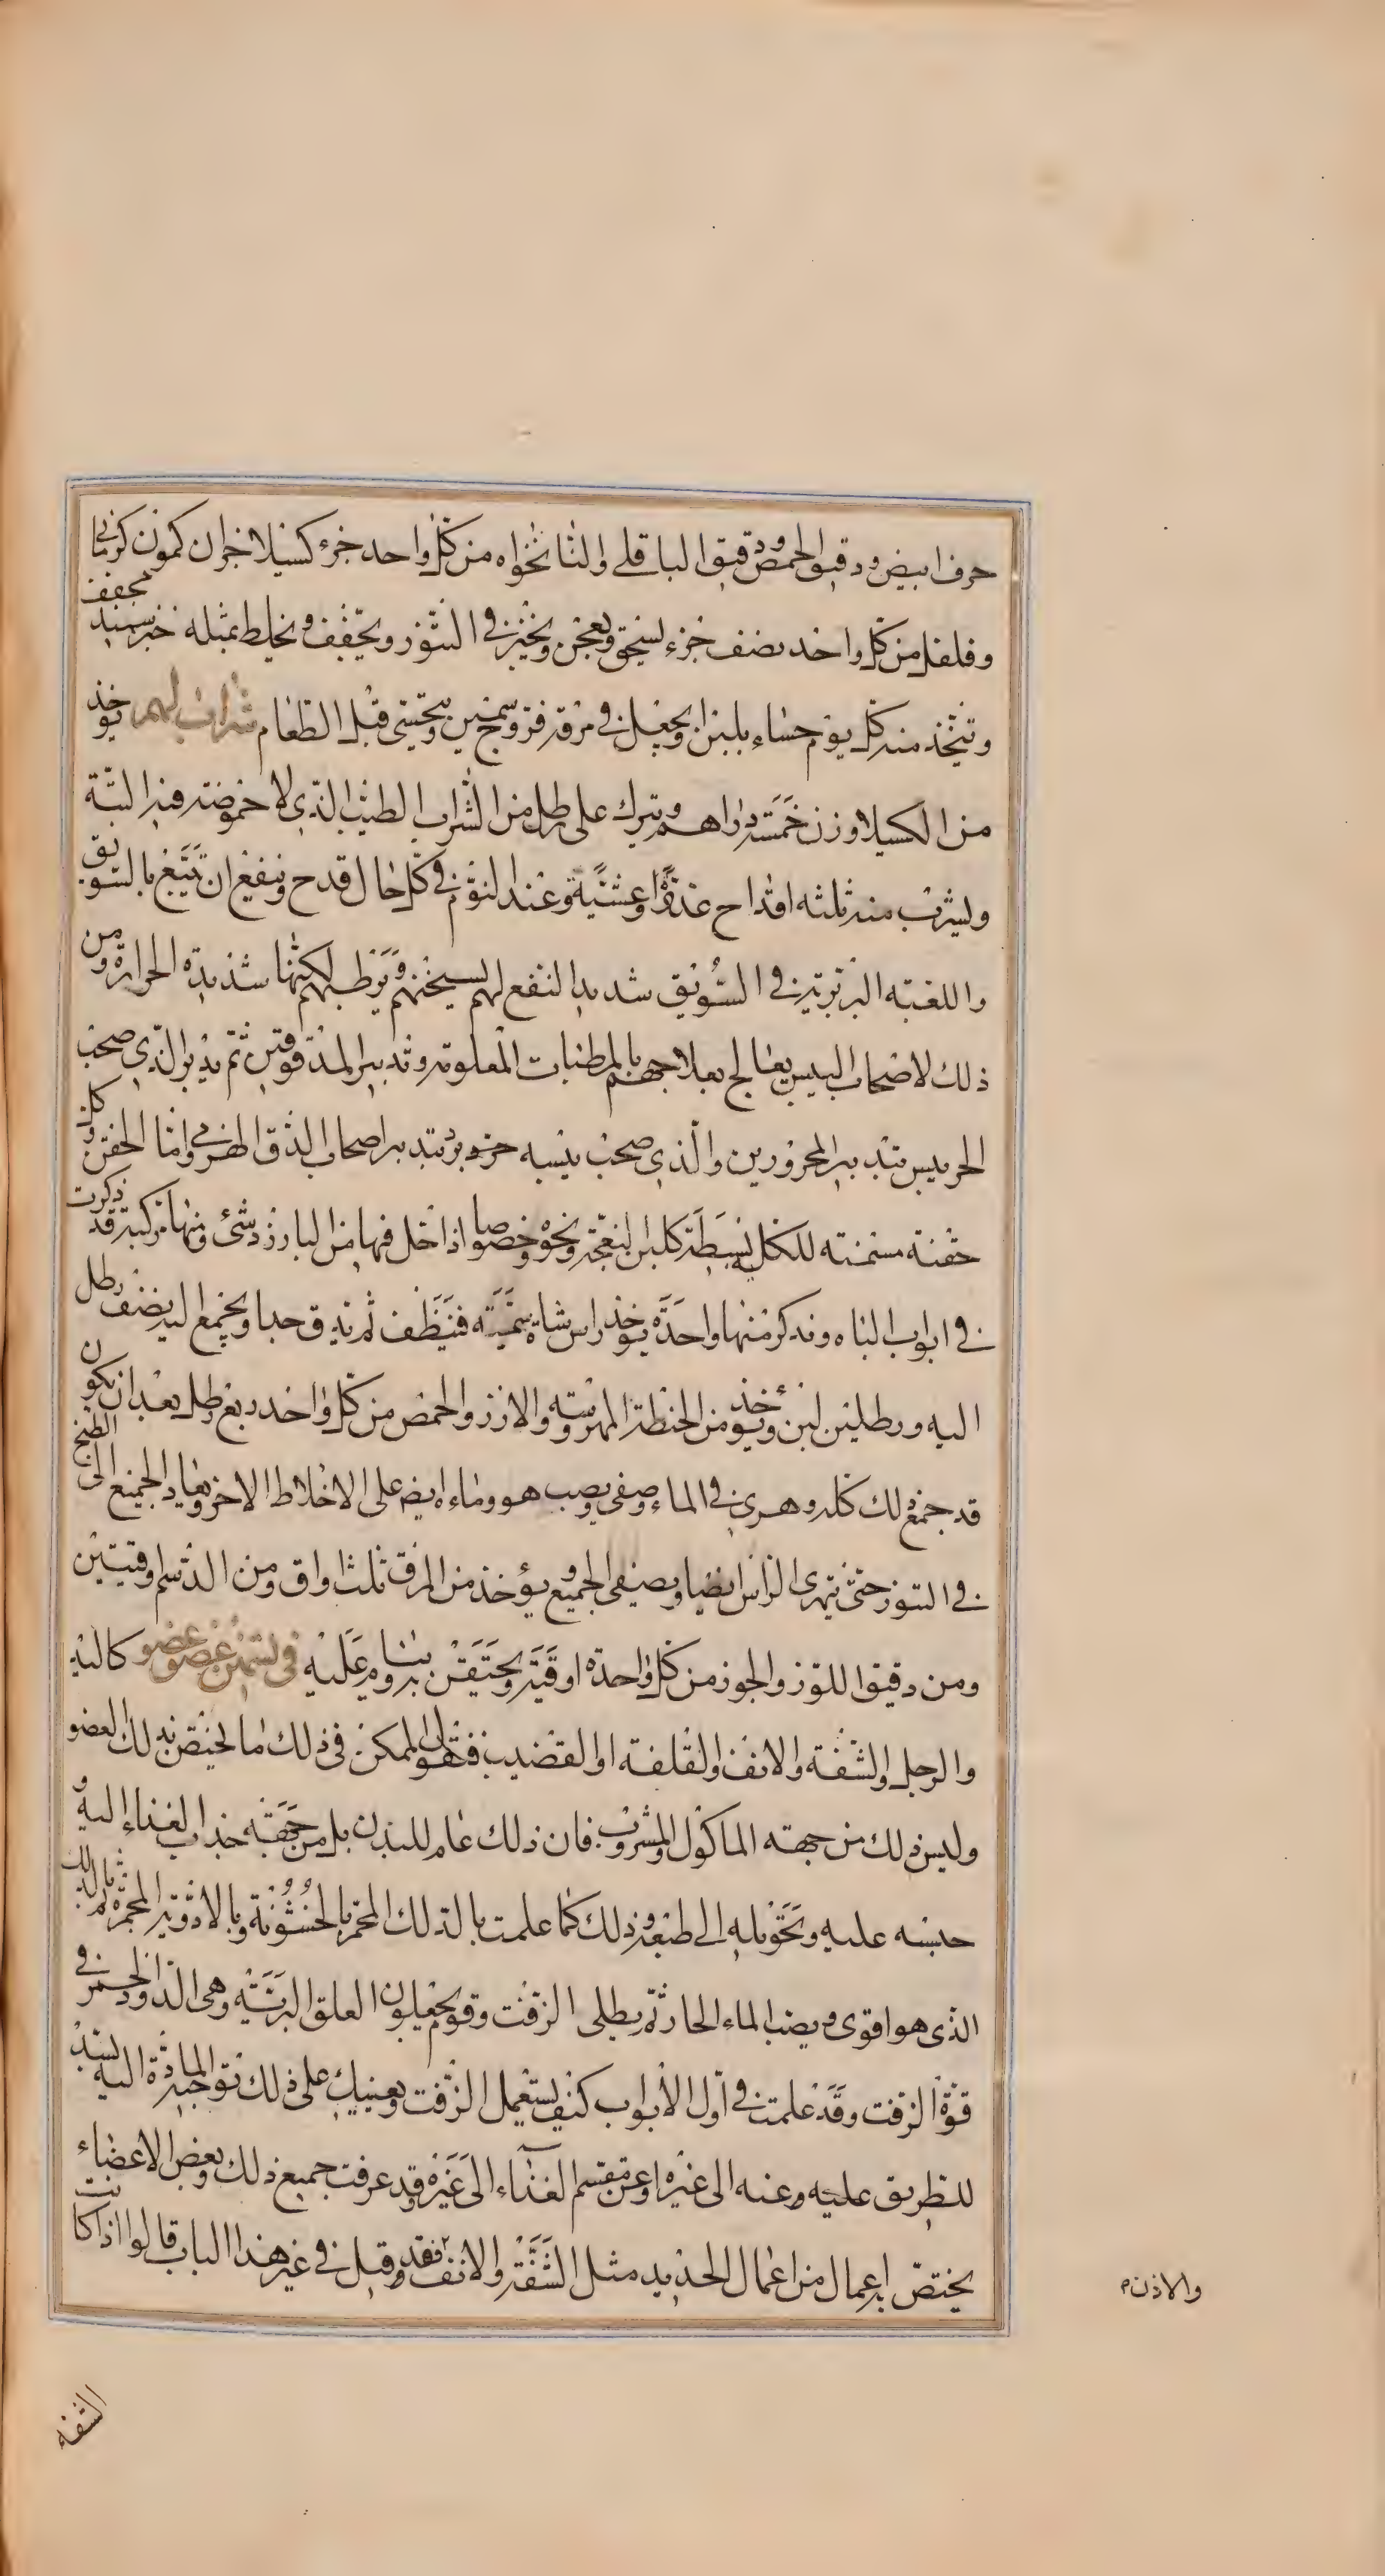 حرف ابيض ودقيق الحمص ودقيق الباقلى والنانخواه من كل واحد جزء كسيلا جزآن كمون كرمانى
وفلفل من كل واحد نصف جزء يسحق ويعجن ويخبز فى التنور ويجفف ويخلط بمثله خبز سميد مجفف
ويتخذ منه كل يوم حساء بلبن او يجعل فى مرقة فروج سمين ويحتسى قبل الطعام شراب لهم يؤخذ
من الكسيلا وزن خمسة دراهم ويترك على رطل من الشراب الطيب الذى لا حموضة فيه البتة
ويشرب منه ثلثه اقداح غدوة وعشية وعند النوم فى كل حال قدح وينفع ان تتبع بالسويق
واللعبة البربرية فى السويق شديد النفع لهم يسخنهم ويرطبهم لكنها شديدة الحرارة ومن
ذلك لاصحاب اليبس يعالج بعلاجهم بالمرطبات المعلومة وتدبير المدقوقين ثم يدبر الذى صحب
الحر يبسه بتدبير المحرورين والذى صحب يبسه برد بتدبير اصحاب الدق الهرمى واما الحقن وكل
حقنة مسمنة للكلى بسيطة كلبن النعجة ونحوه وخصوصا اذا جعل فيها من البارزد شئ ومنها مركبة قد ذكرت
فى ابواب الباه ونذكر منها واحدة يؤخذ راس شاة سمينة فينظف ثم يدق جدا ويجمع اليه نصف رطل
اليه ورطلين لبن ويؤخذ من الحنطة المهروسة والارز والحمص من كل واحد ربع رطل بعد ان يكون
قد جمع ذلك كله وهرى فى الماء وصفى ويصب هو وماءه ايضا على الاخلاط الاخر ويعاد الجميع الى الطبخ
فى التنور حتى يتهرى الراس ايضا ويصفى الجميع ويؤخذ من المرق ثلث اواق ومن الدسم اوقيتين
ومن دقيق اللوز والجوز من كل واحدة اوقية ويحتقن به وينام عليه فى تسمين عضو عضو كاليد
والرجل والشفة والانف والقلفة او القضيب فنقول الممكن فى ذلك ما يختص بذلك العضو
وليس ذلك من جهة الماكول والمشروب فان ذلك عام للبدن بل من جهة جذب الغذاء اليه و
حبسه عليه وتحويله الى طبعه وذلك كما علمت بالدلك المحمر بالخشونة وبالادوية المحمرة ثم بالدلك
الذى هو اقوى وبصب الماء الحار ثم يطلى الزفت وقوم يجعلون العلق البرية وهى الدود الحمر فى
قوة الزفت وقد علمت فى اول الابواب كيف يستعمل الزفت ويعينك على ذلك توالى المادة اليه بسد
الطريق عليه وعنه الى غيره او عن مقسم الغذاء الى غيره وقد عرفت جميع ذلك وبعض الاعضاء
يختص به اعمال من اعمال الحديد مثل الشفة والانف فقد وقيل فى غير هذا الباب قالوا اذا كانت
والاذن م
الشفة